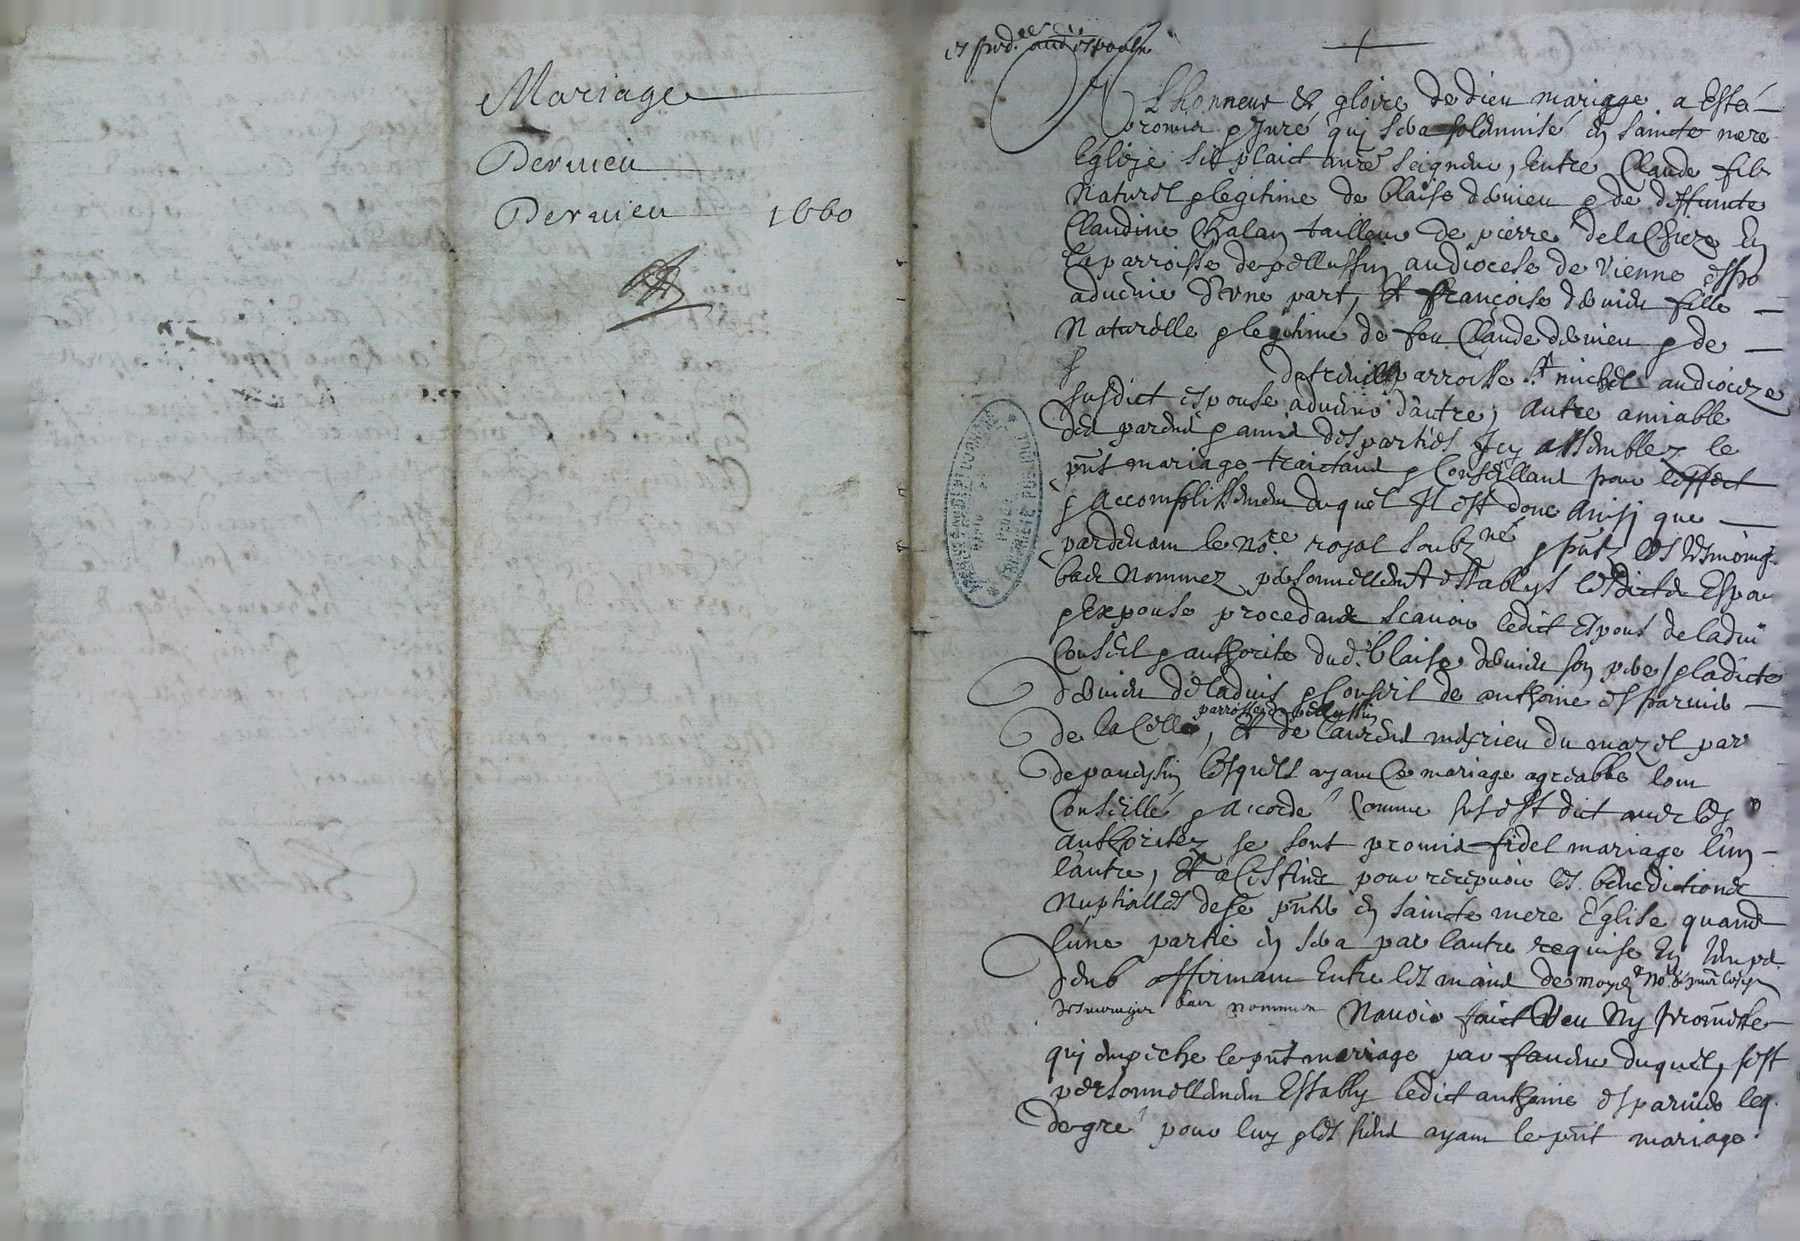 Mariage
Dervieu
Dervieu 1660
A Lhonneur & gloire de dieu mariage a esté
promis & Juré quy sera solemnisé en saincte mere
Eglize sil plaict nre seigneur, Entre Claude filz
Naturel & legitime de Blaise dervieu & de deffuncte
Claudine Chalan tailleur de pierre de la Chieze En
la parroisse de pellussin au diocese de Vienne espo
advenir d'Une part, Et françoise dervieu fille
Naturelle & legitime de feu Claude dervieu & de
parroisse St michel au dioceze
susdict espouse advenir d'autre, Autre amiable
des parens & amis des parties Icy assemblez le
pnt mariage traictans & Conseillans pour leffect
& accomplissement duquel Il est donc Ainsi que
pardevant le Nore royal soubzné & pntz les tesmoings
bas Nommez personnellement establys lesdicts Espo
& Expouse procedans scavoir ledict Espous de ladvis
Conseil & authorite dud. blaise dervieu son pere / & ladicte
dervieu de ladvis & Conseil de anthoine esparvier
parroisse de pellussin
de la Celle, Et de laurens metrieu du mazel par
de pavezin lesquels ayant Ce mariage agreable lont
Conseillé & accordé Comme sus est dict avec les
authoritez se sont promis fidel mariage l'un
l'autre, Et a Ces fins pour recepvoir les benedictions
Nuptialles de se pnter en saincte mere Église quand
lune partie en sera par lautre requise En temps
deub affirmant Entre les mains de moyd. Nore
tesmoings bas nommes Navoir faict Veu Ny promesse
quy empeche le pnt mariage par faveur duquel, sest
personnellement Estably ledict anthoine esparvier leq.
de gre pour luy & les siens ayant le pnt mariage